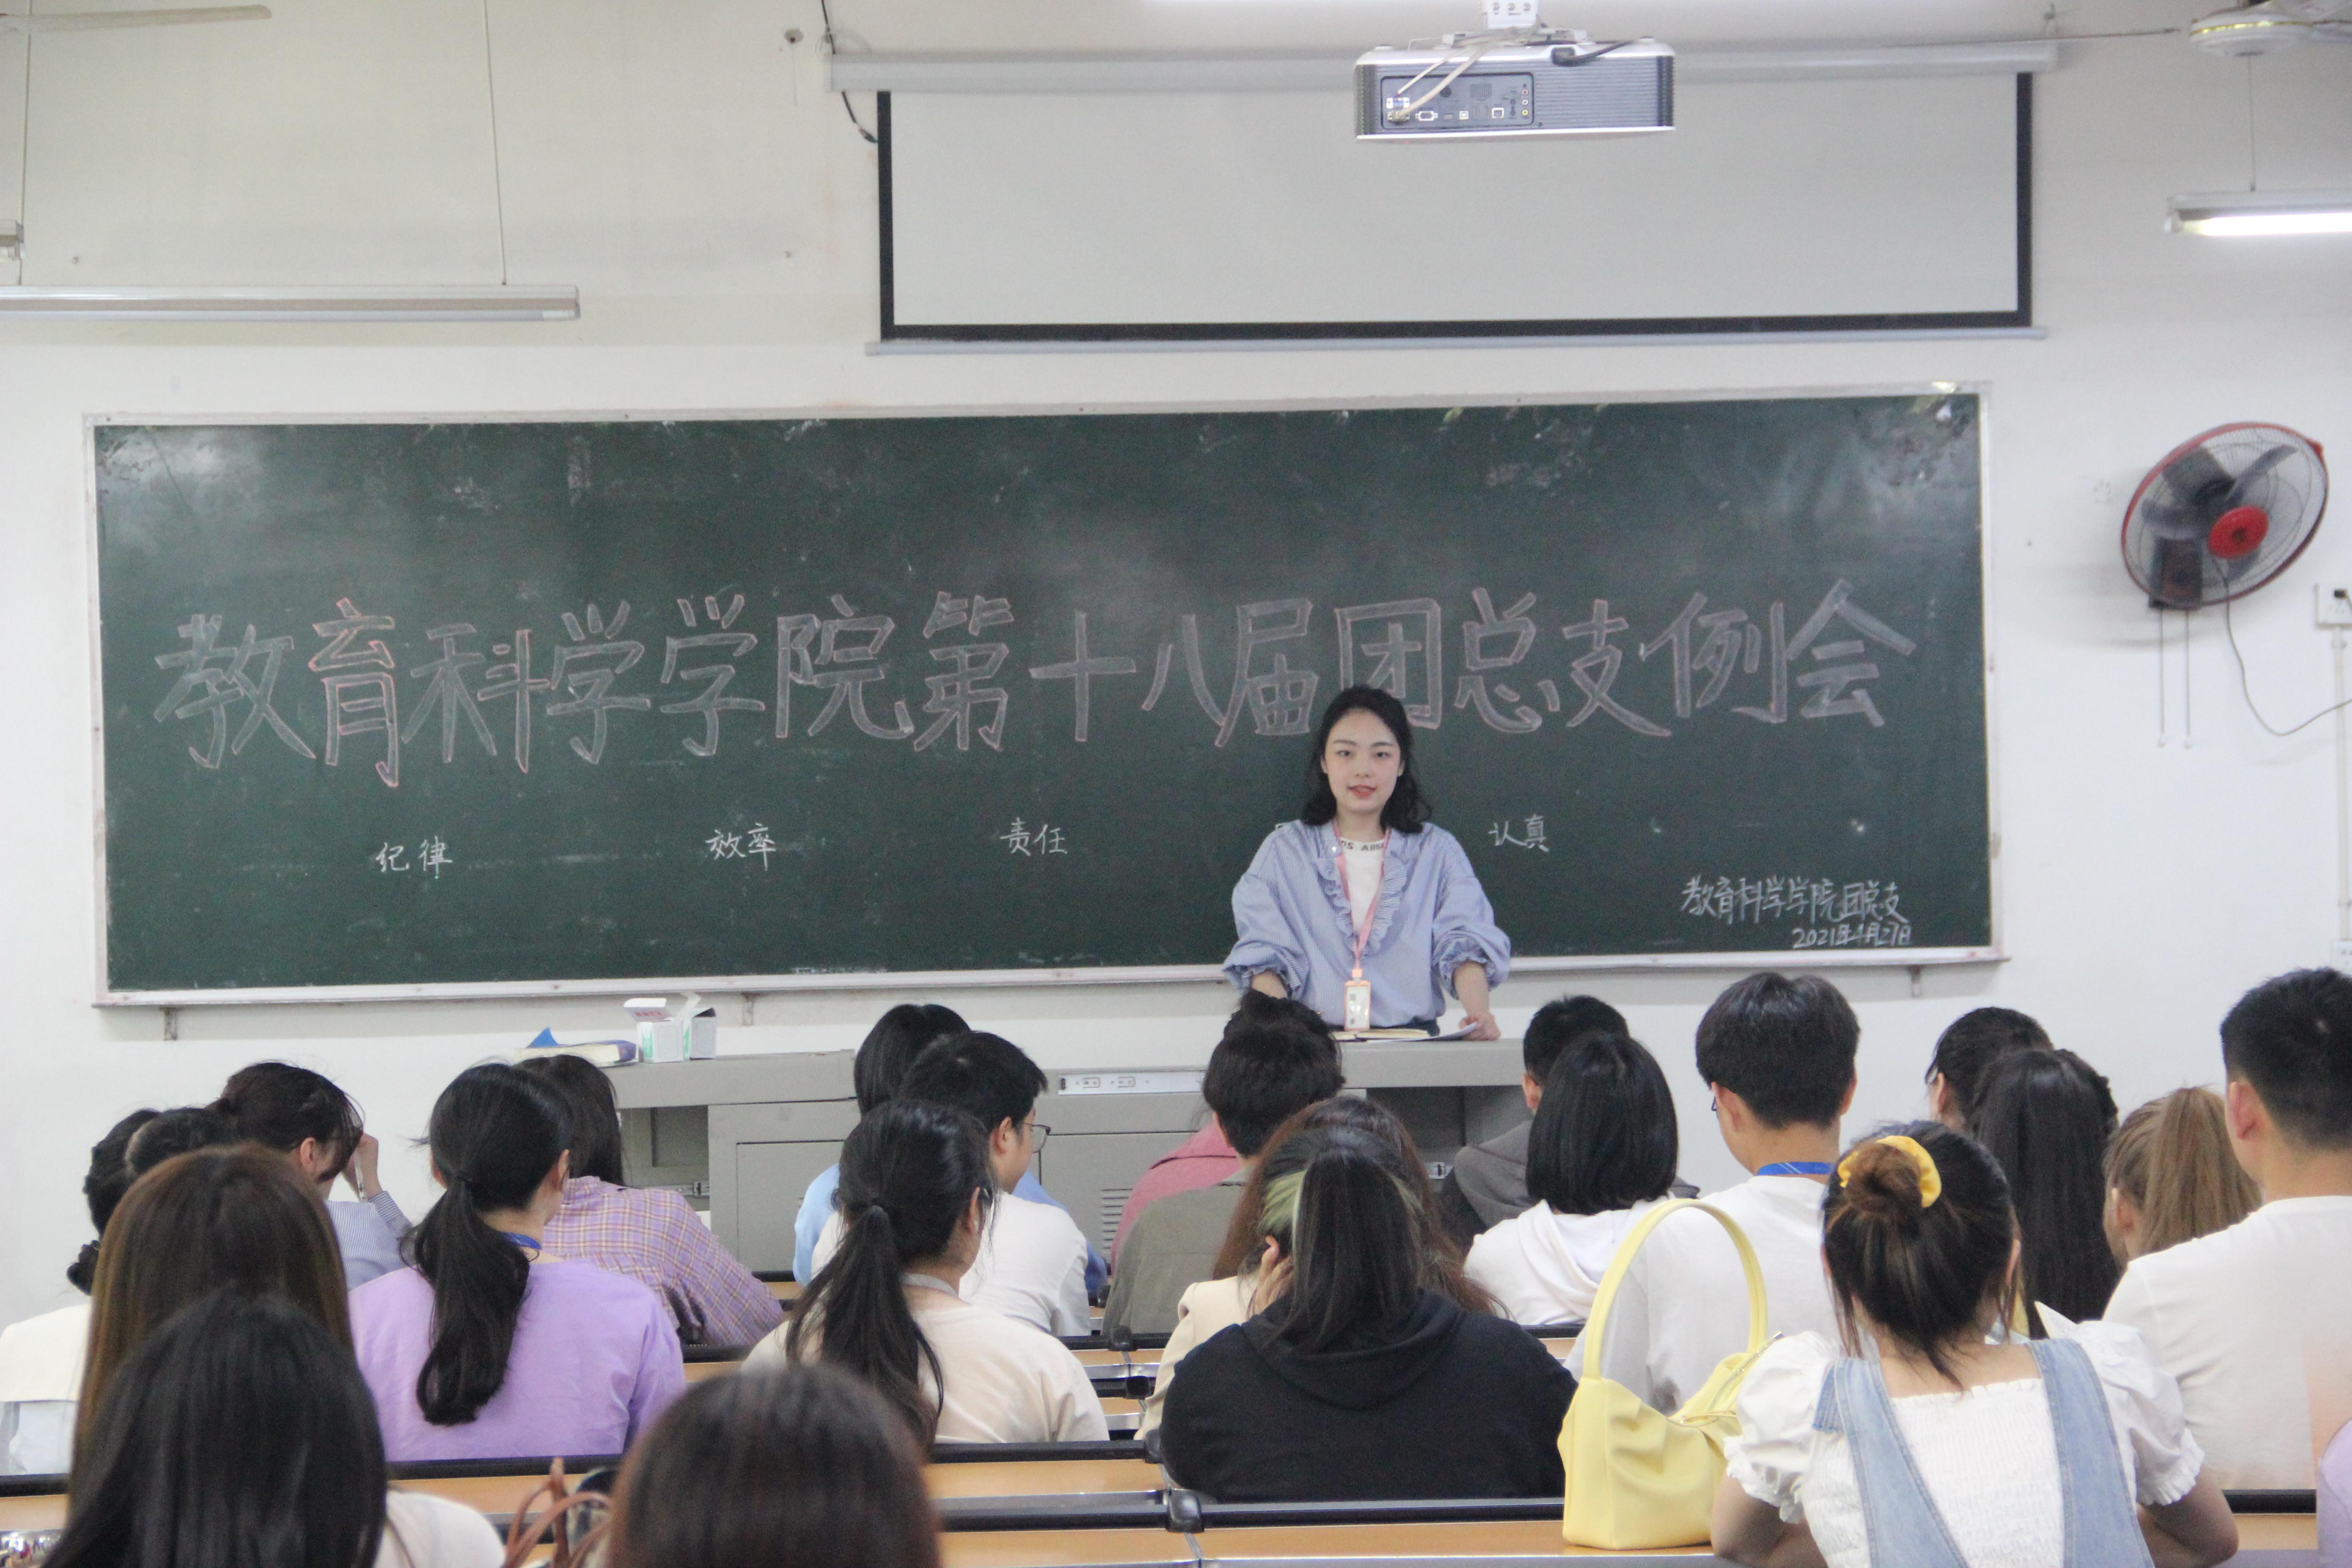 教育科学学院第十八届团总支例会
纪律 效率 责任 认真
教育科学学院团总支
2021年4月27日